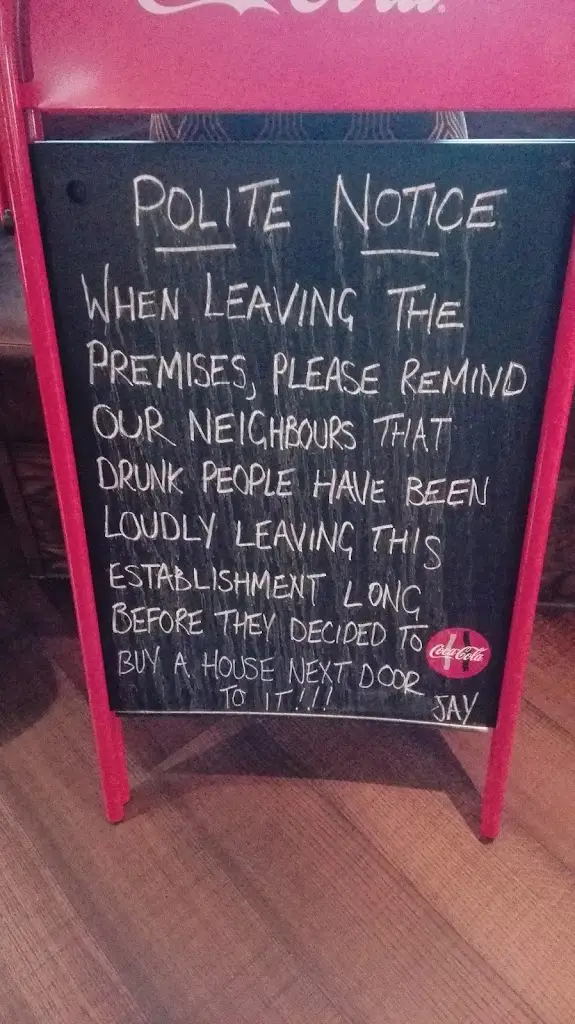 Cola
POLITE NOTICE
WHEN LEAVING THE
PREMISES, PLEASE REMIND
OUR NEIGHBOURS THAT
DRUNK PEOPLE HAVE BEEN
LOUDLY LEAVING THIS
ESTABLISHMENT LONG
BEFORE THEY DECIDED TO
BUY A HOUSE NEXT DOOR
TO IT!!!
Coca-Cola
JAY